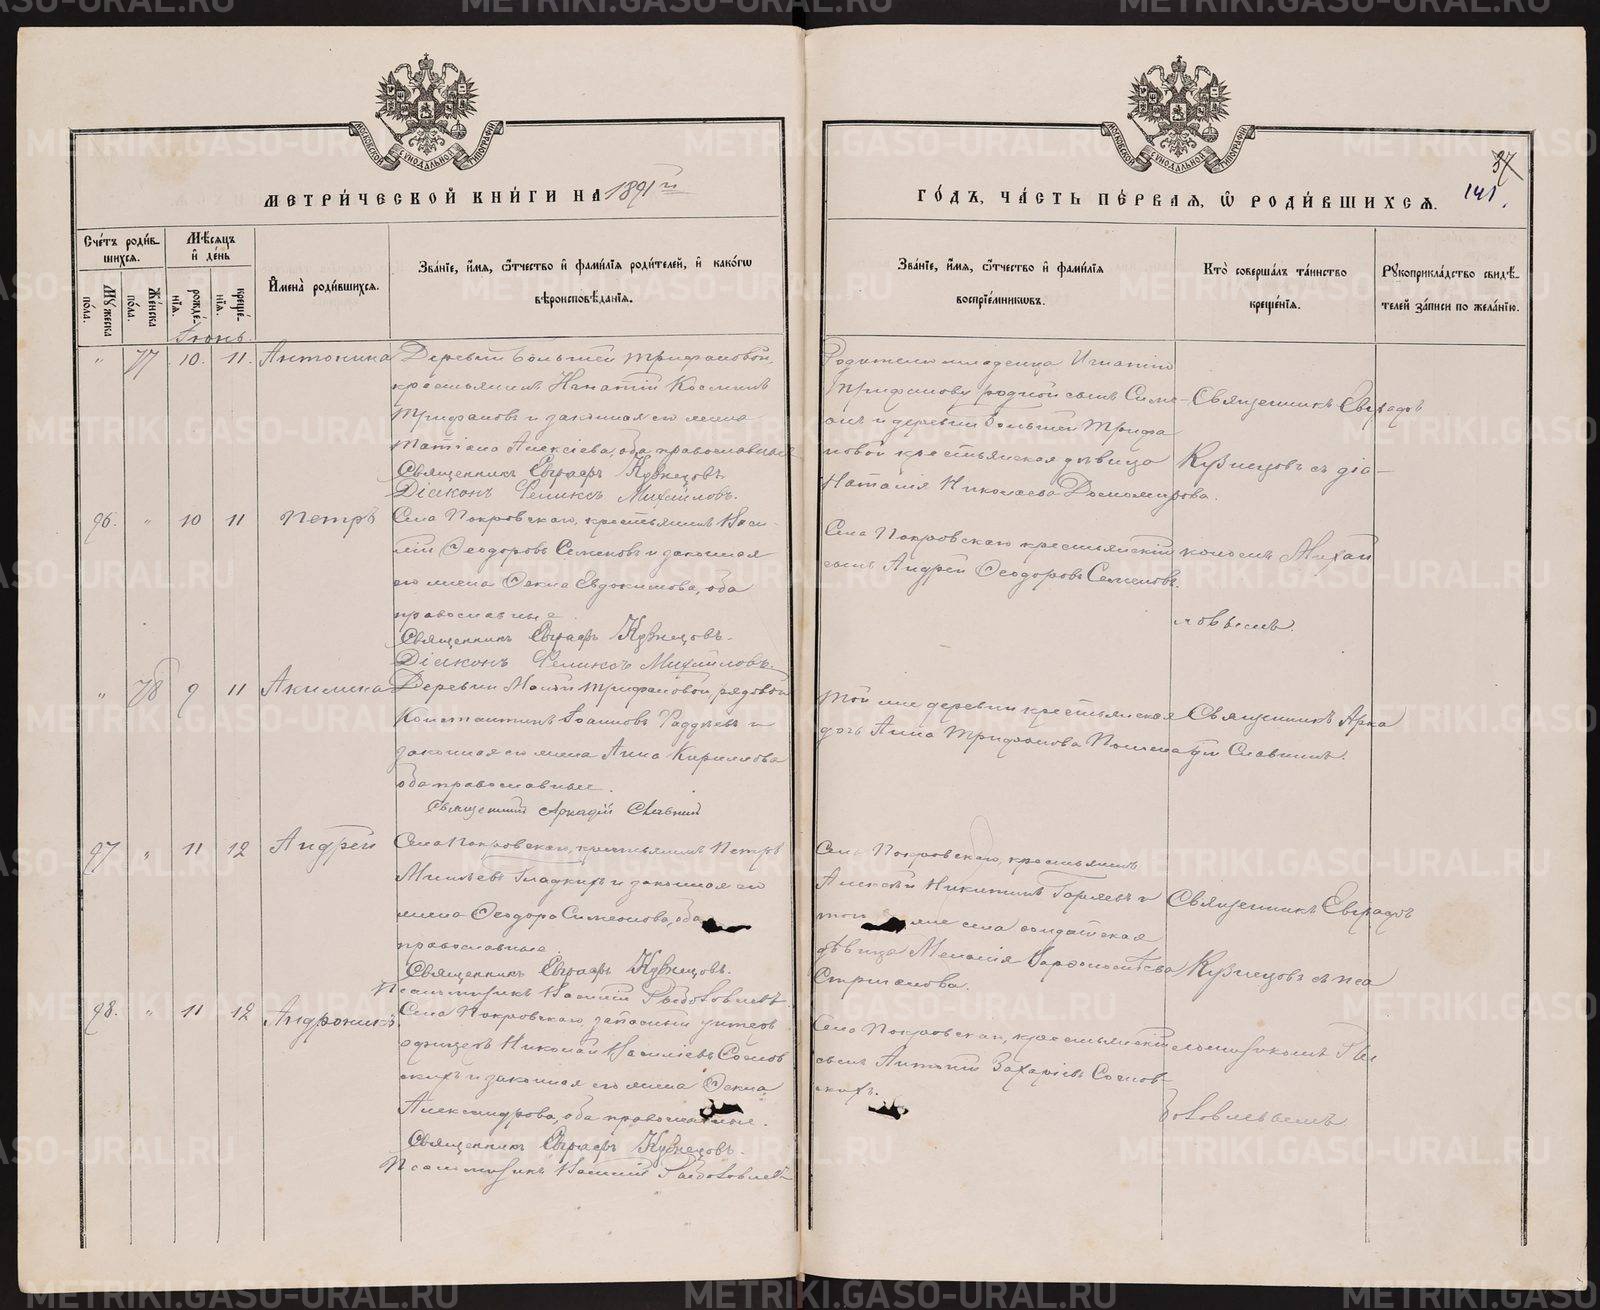 МЕТРИ́ЧЕСКОЙ КНИ́ГИ НА 1891 й
ГО́ДЪ, ЧА́СТЬ ПЕ́РВАЯ, Ѿ РОДИ́ВШИХСѦ.
37
141.
МОСКОВСКОЙ СѴНОДАЛЬНОЙ ТИПОГРАФІИ
МОСКОВСКОЙ СѴНОДАЛЬНОЙ ТИПОГРАФІИ
Сче́тъ роди́в-
шихся.
Мѣ́сяцъ
и҆ де́нь
Мꙋ́жеска по́ла.
Же́нска по́ла.
рожде́нїя.
креще́нїя.
И҆мена̀ роди́вшихся.
Зва́нїе, и҆́мя, ѻ҆́тчество и҆ фами́лїя роди́телей, и҆ како́гѡ
вѣроисповѣ́данїя.
Зва́нїе, и҆́мя, ѻ҆́тчество и҆ фами́лїя
воспрїе́мниковъ.
Кто̀ соверша́лъ та́инство
креще́нїя.
Рꙋкоприкла́дство свидѣ́-
телей за́писи по жела́нїю.
Іюнь
" 77 10. 11. Антонина
Деревни Большей Трифановой,
крестьянинъ Игнатій Косминъ
Трифановъ и законная его жена
Татіана Алексіева, оба православные
Священникъ Евграфъ Кузнецовъ.
Діаконъ Феликсъ Михайловъ.
Родители младенца Игнатія
Трифанову родной сынъ Симе-
онъ и деревни Большей Трифа
новой крестьянская дѣвица
Наталія Николаева Домомирова.
Священникъ Евграфъ
Кузнецовъ съ діа-
96. " 10 11 Петръ
Села Покровскаго, крестьянинъ Васи-
лій Ѳеодоровъ Семеновъ и законная
его жена Ѳекла Евдокимова, оба
православные.
Священникъ Евграфъ Кузнецовъ.
Діаконъ Феликсъ Михайловъ.
Села Покровскаго крестьянскій
сынъ Андрей Ѳеодоровъ Семеновъ.
кономъ Михай
ловымъ.
" 78 9 11 Акилина
Деревни Малой Трифановой, рядовой
Константинъ Іоанновъ Фаддѣевъ и
законная его жена Анна Кириллова
оба православные.
Священникъ Аркадій Славнинъ
Той же деревни крестьянская
дочь Анна Трифонова
Священникъ Арка
дій Славнинъ.
97 " 11 12 Андрей
Села Покровскаго, крестьянинъ Петръ
Гладкихъ и законная его
жена Ѳеодора Симеонова, оба
православные.
Священникъ Евграфъ Кузнецовъ.
Псаломщикъ Василій
Села Покровскаго, крестьянинъ
Алексѣй Никитинъ Горяевъ и
того же села солдатская
дѣвица Меланія Варфоломѣева
Стриганова.
Священникъ Евграфъ
Кузнецовъ съ пса
98. " 11 12 Андроникъ
Села Покровскаго, запасный унтеръ
офицеръ Николай Василіевъ Соснов
скихъ и законная его жена Ѳекла
Александрова, оба православные.
Священникъ Евграфъ Кузнецовъ.
Псаломщикъ Василій
Села Покровскаго, крестьянскій
сынъ Антоній Захаріевъ Соснов-
скихъ.
ломщикомъ
METRIKI.GASO-URAL.RU